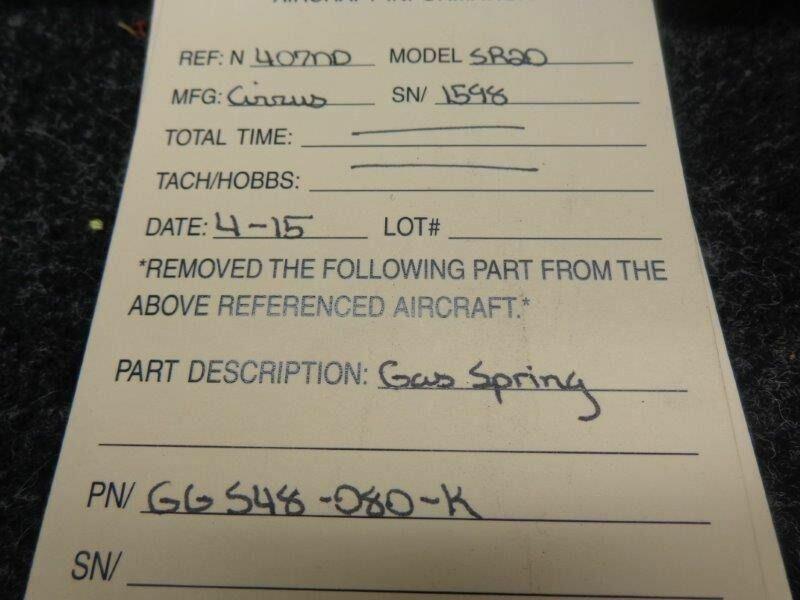 REF: N 407ND MODEL SR20
MFG: Cirrus SN/ 1598
TOTAL TIME:
TACH/HOBBS:
DATE: 4-15 LOT#
*REMOVED THE FOLLOWING PART FROM THE
ABOVE REFERENCED AIRCRAFT.*
PART DESCRIPTION: Gas Spring
PN/ GG S48-080-K
SN/